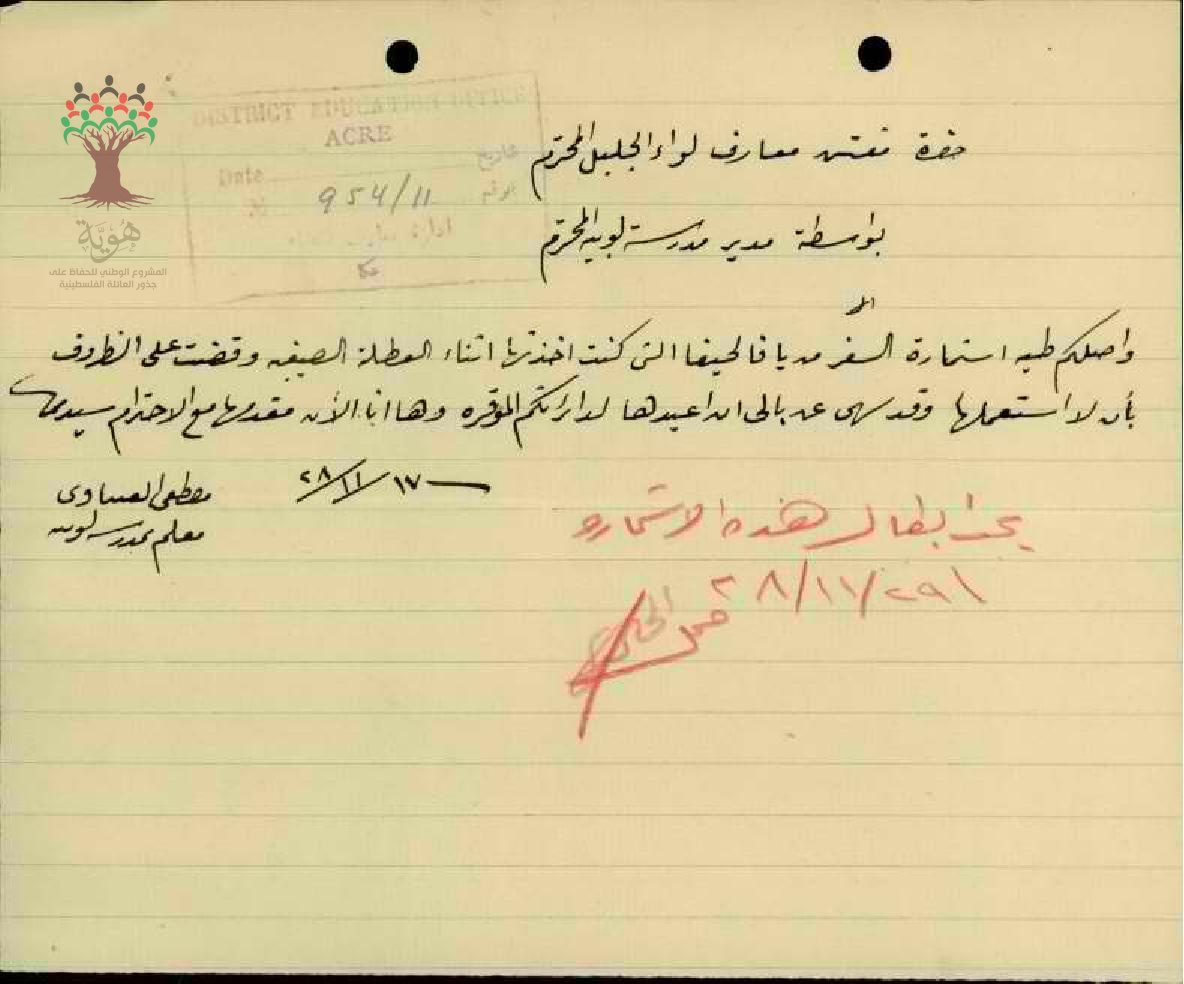 DISTRICT EDUCATION OFFICE
ACRE
Date
تاريخ
954/11
عكا
هُويّة
المشروع الوطني للحفاظ على
جذور العائلة الفلسطينية
حضرة مفتش معارف لواء الجليل المحترم
بواسطة مدير مدرسة لوبيه المحترم
واصلكم طيه استمارة السفر من يافا لحيفا التي كنت اخذتها اثناء العطلة الصيفيه وقضت على الظروف
بأن لا استعملها وقد سهى عن بالي ان اعيدها لدائرتكم الموقره وها انا الآن مقدمها مع الاحترام سيدي
١٧/١١/٢٨
مصطفى العيساوي
معلم بمدرسة لوبيه
يجب ابطال هذه الاستماره